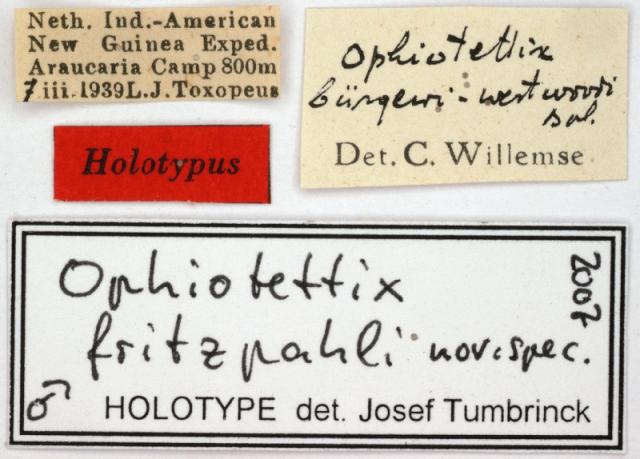 Neth. Ind.-American
New Guinea Exped.
Araucaria Camp 800m
7 iii.1939 L.J.Toxopeus
Ophiotettix
bürgeri-westwoodi
Bol.
Det. C. Willemse
Holotypus
Ophiotettix
fritzpahli nov. spec.
2007
♂ HOLOTYPE det. Josef Tumbrinck